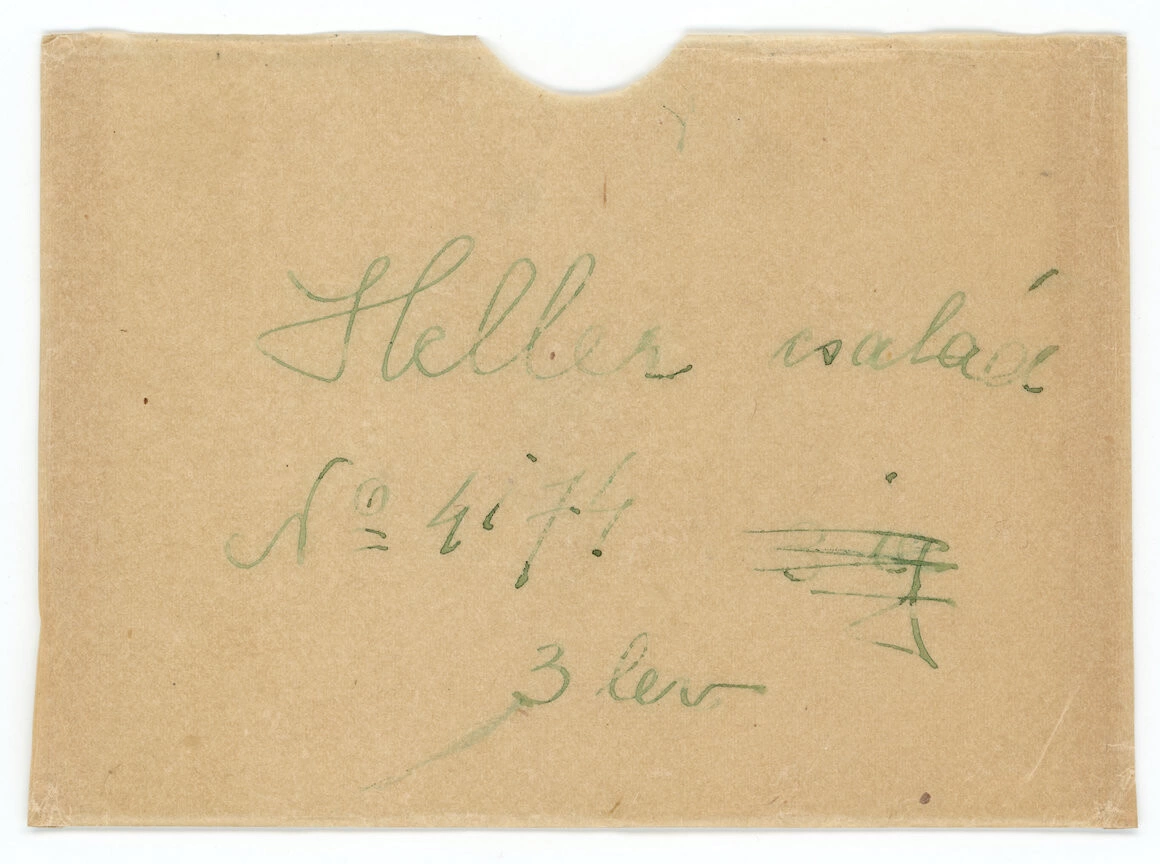 Heller család
Nº 4174
3 lev